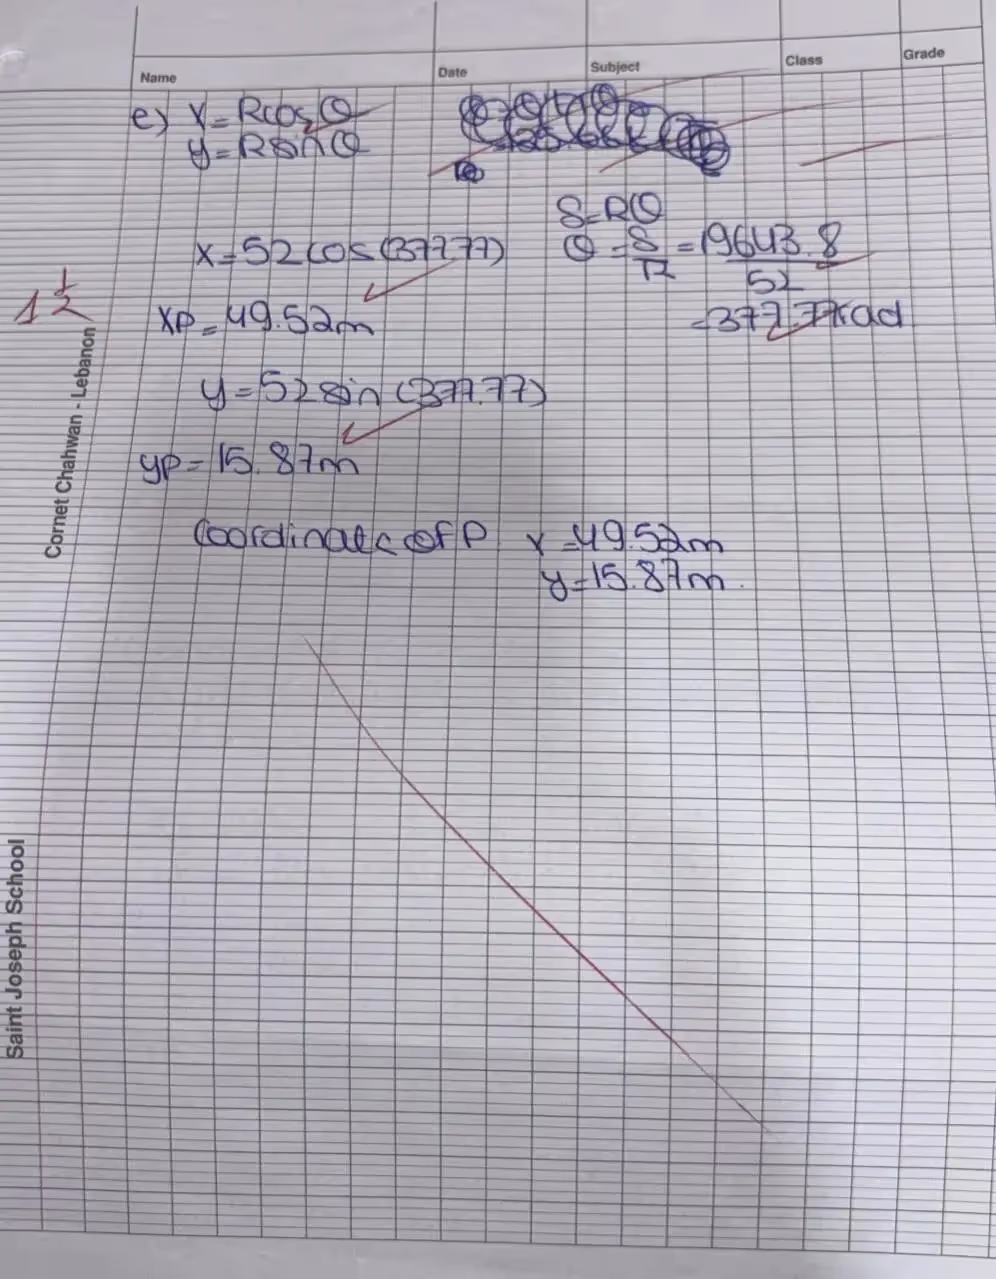 Name Date Subject Class Grade
e) x = Rcosθ
y = Rsinθ
S = Rθ
θ = S/R = 19643.8/52
x = 52 cos (377.77)
= 377.77rad
1 1/2
xp = 49.52m
y = 52 sin (377.77)
yp = 15.87m
Coordinates of P x = 49.52m
y = 15.87m.
Cornet Chahwan - Lebanon
Saint Joseph School